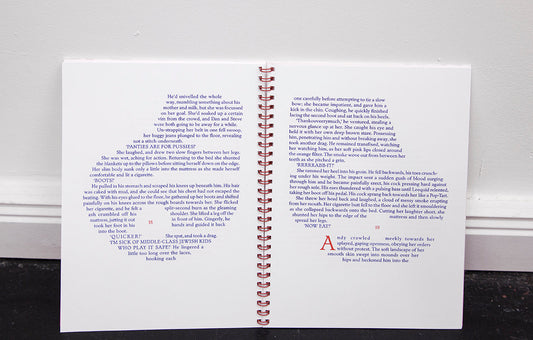 He'd snivelled the whole
way, mumbling something about his
mother and milk, but she was focussed
on her goal. She'd soaked up a certain
vim from the crowd, and Dan and Steve
were both going to be away for a while.
Un-strapping her belt in one fell swoop,
her baggy jeans plunged to the floor, revealing
not a stitch underneath.
'PANTIES ARE FOR PUSSIES!'
She laughed, and drew two slow fingers between her legs.
She was wet, aching for action. Returning to the bed she shunted
the blankets up to the pillows before sitting herself down on the edge.
Her slim body sunk only a little into the mattress as she made herself
comfortable and lit a cigarette.
'BOOTS!'
He pulled in his stomach and scraped his knees up beneath him. His hair
was caked with mud, and she could see that his chest had not escaped the
beating. With his eyes glued to the floor, he gathered up her boots and shifted
painfully on his knees across the rough boards towards her. She flicked
her cigarette, and he felt a split-second burn as the gleaming
ash crumbled off his shoulder. She lifted a leg off the
mattress, jutting it in front of him. Gingerly, he
took her foot in his hands and guided it back
into the boot.
'QUICKER!' She spat, and took a drag.
'I'M SICK OF MIDDLE-CLASS JEWISH KIDS
WHO PLAY IT SAFE!' He lingered a
little too long over the laces,
hooking each
one carefully before attempting to tie a slow
bow: she became impatient, and gave him a
kick in the chin. Coughing, he quickly finished
lacing the second boot and sat back on his heels.
'Thankyouverymuch,' he ventured, stealing a
nervous glance up at her. She caught his eye and
held it with her own deep brown stare. Possessing
him, penetrating him and without breaking away, she
took another drag. He remained transfixed, watching
her watching him, as her soft pink lips closed around
the orange filter. The smoke wove out from between her
teeth as she pitched a grin.
She rammed her heel into his groin. He fell backwards, his toes crunching
under his weight. The impact sent a sudden gush of blood surging
through him and he became painfully erect, his cock pressing hard against
her rough sole. His ears thundered with a pulsing hum until Leopold relented,
taking her boot off his pedal. His cock sprang back towards her like a Pop-Tart.
She threw her head back and laughed, a cloud of smoky smoke erupting
from her mouth. Her cigarette butt fell to the floor and she left it smouldering
as she collapsed backwards onto the bed. Cutting her laughter short, she
shunted her hips to the edge of the mattress and then slowly
spread her legs.
'NOW EAT!'
Andy crawled meekly towards her
splayed, gaping openness, obeying her orders
without protest. The soft landscape of her
smooth skin swept into mounds over her
hips and beckoned him into the